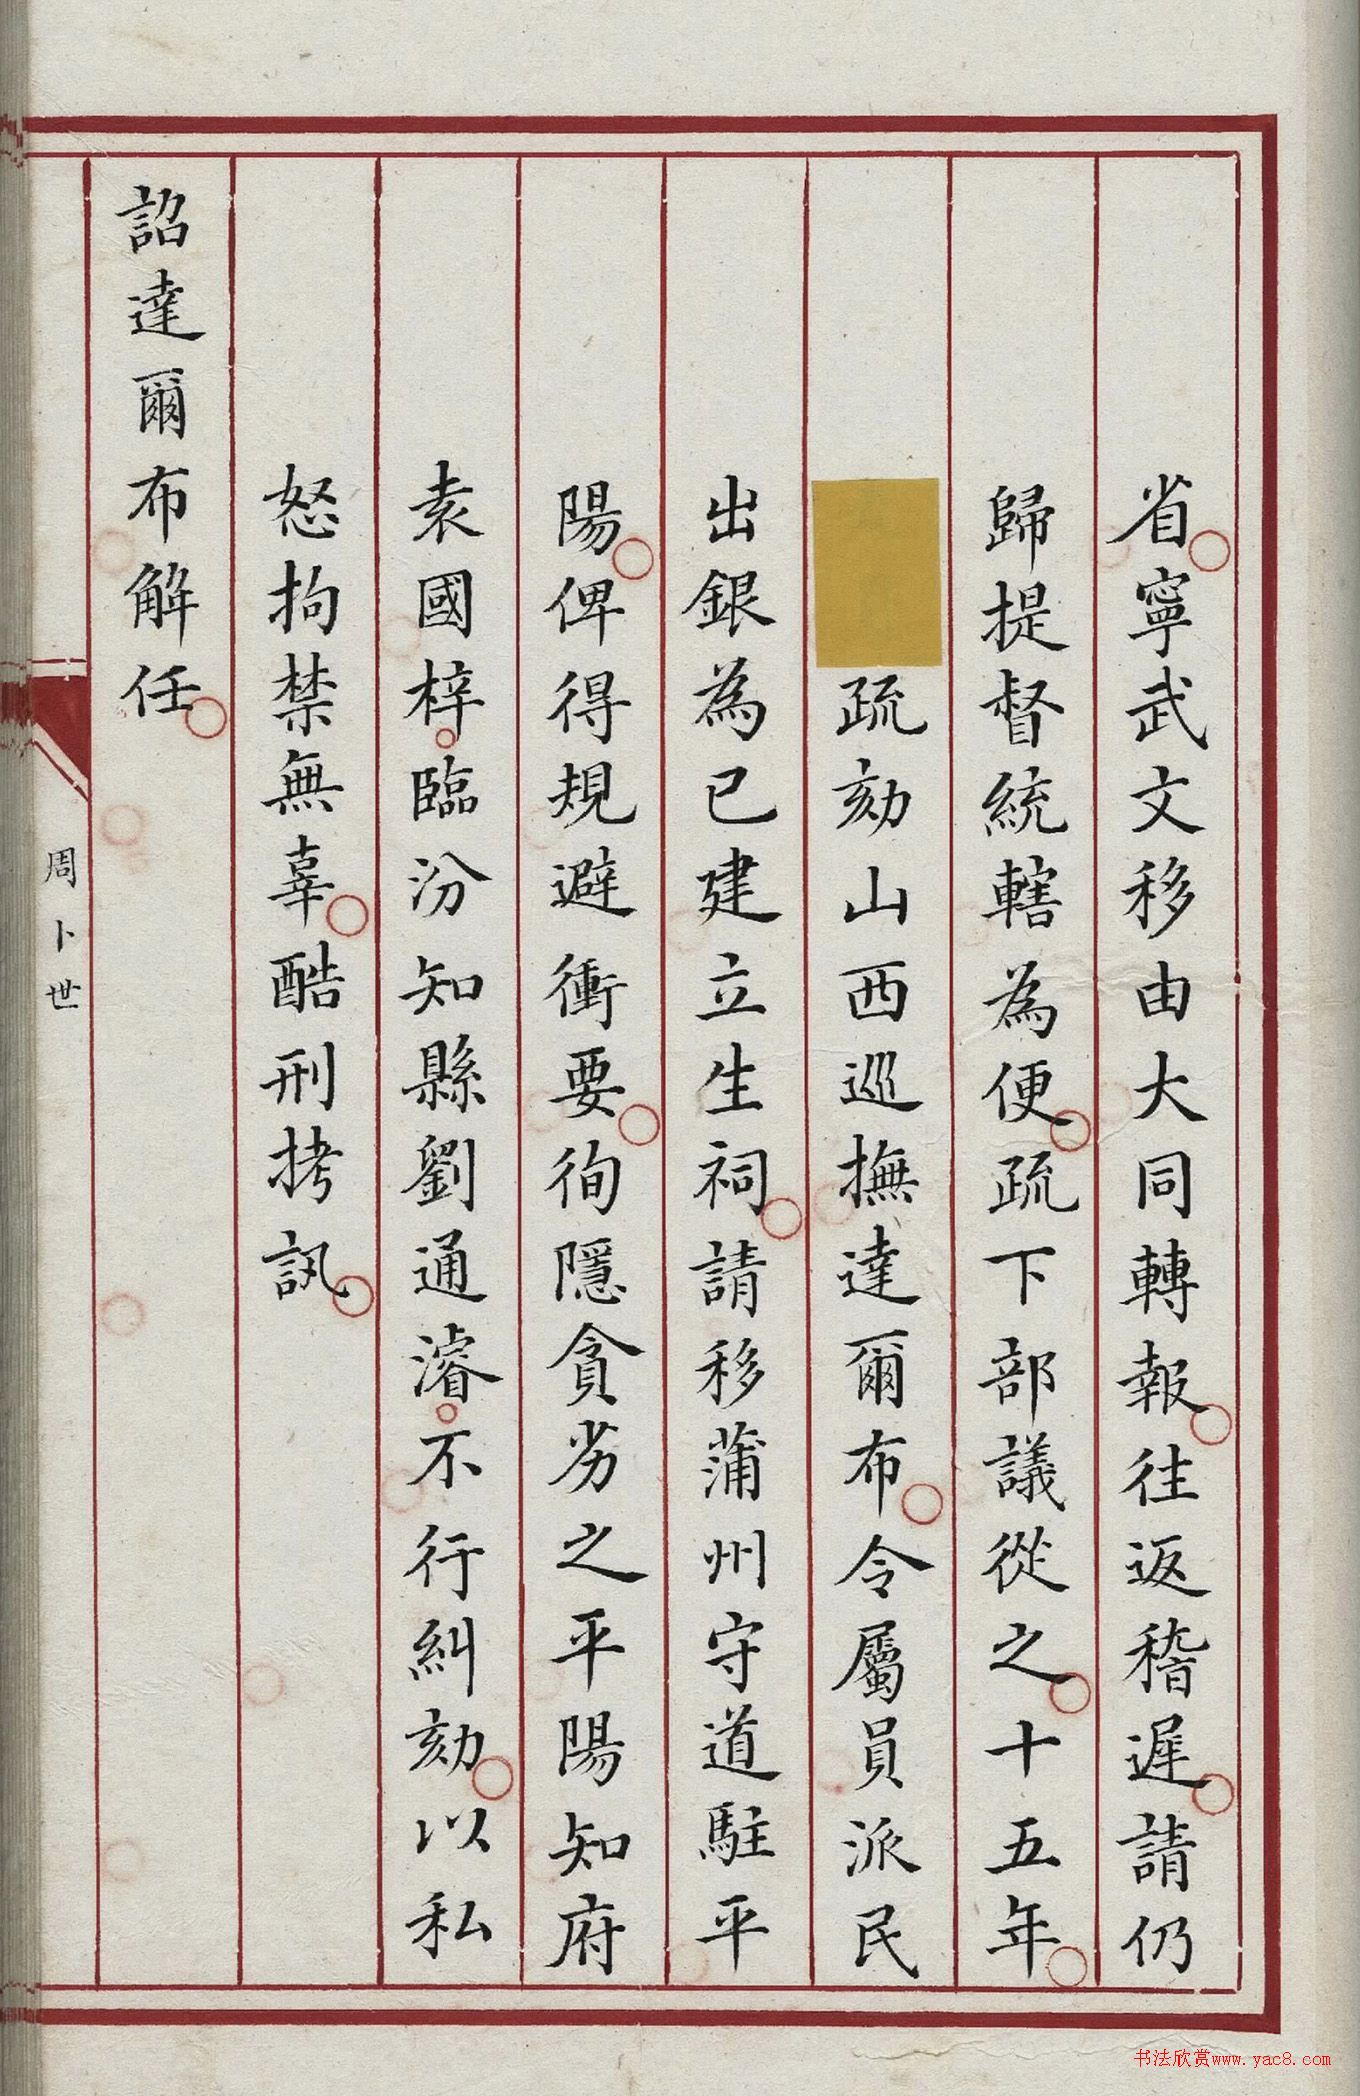 省寧武文移由大同轉報往返稽遲請仍
歸提督統轄為便疏下部議從之十五年
疏劾山西巡撫達爾布令屬員派民
出銀為已建立生祠請移蒲州守道駐平
陽俾得規避衝要徇隱貪劣之平陽知府
袁國梓臨汾知縣劉通濬不行糾劾以私
怒拘禁無辜酷刑拷訊
詔達爾布解任
周卜世
书法欣赏www.yac8.com